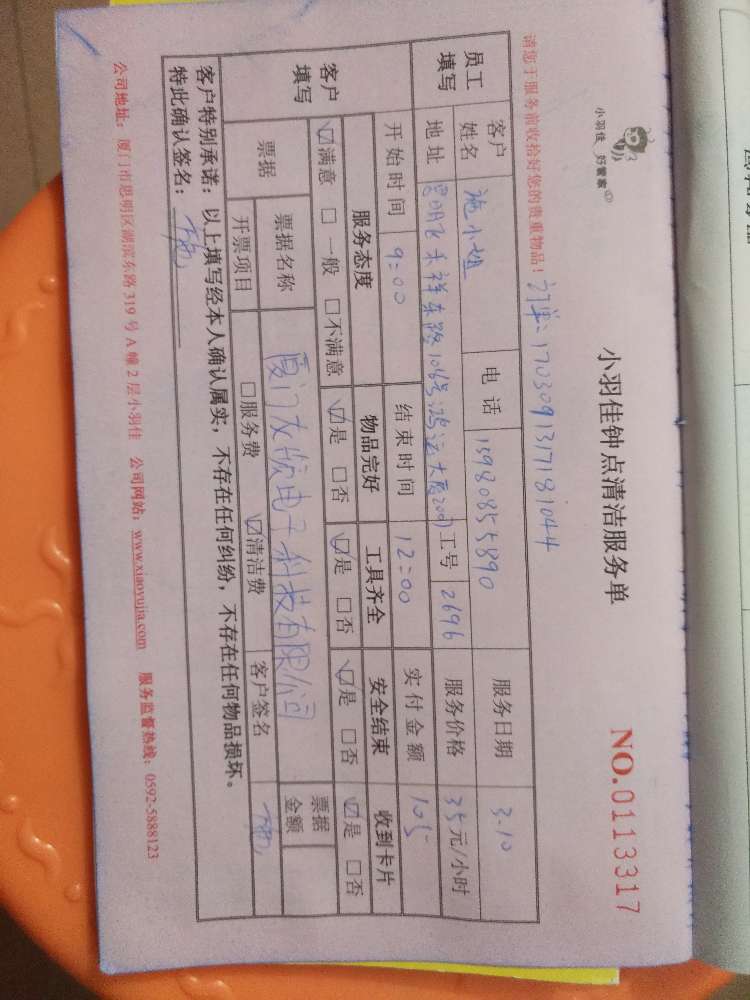 小羽佳 好管家
小羽佳钟点清洁服务单
NO.0113317
请您于服务前收拾好您的贵重物品! 订单:170309137181044
员工填写 客户姓名 施小姐 电话 15980855890 服务日期 3.10
地址 思明区禾祥东路106号鸿运大厦 工号 2696 服务价格 35元/小时
开始时间 9:00 结束时间 12:00 实付金额 105
客户填写 服务态度 物品完好 工具齐全 安全结束 收到卡片
☑满意 □一般 □不满意 ☑是 □否 ☑是 □否 ☑是 □否 ☑是 □否
票据 票据名称 厦门友欣电子科技有限公司 票据金额
开票项目 □服务费 ☑清洁费 客户签名
客户特别承诺:以上填写经本人确认属实,不存在任何纠纷,不存在任何物品损坏。
特此确认签名:
公司地址:厦门市思明区湖滨东路319号A幢2层小羽佳 公司网站:www.xiaoyujia.com 服务监督热线:0592-5888123